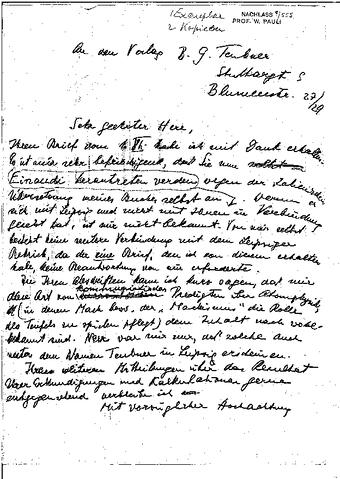 1 Exemplar
2 Kopieen
NACHLASS
PROF. W. PAULI
An den Verlag B. G. Teubner
Stuttgart S
Blumenstr. 27/29
Sehr geehrter Herr,
Ihren Brief vom habe ich mit Dank erhalten.
Es ist mir sehr befriedigend, dass Sie nun
Einaudi herantreten werden wegen der
Übersetzung meines Buches selbst an
sich mit Leipzig und nicht mit Ihnen in Verbindung
gesetzt hat, ist mir nicht bekannt. Von mir selbst
besteht keine weitere Verbindung mit dem Leipziger
Betrieb, da der eine Brief, den ich von diesem erhalten
habe, keine Beantwortung von mir erforderte.
Zu Ihren kann ich kurz sagen, dass mir
diese Art von Predigten
(in denen Mach bzw. der "Machismus" die Rolle
des Teufels zu spielen pflegt) dem Inhalt nach
bekannt sind. Neu war mir nur, dass solche auch
unter dem Namen Teubner in Leipzig erscheinen.
Ihren weiteren Mitteilungen über das Resultat
Ihrer Erkundigungen und Kalkulationen gerne
entgegensehend verbleibe ich
Mit vorzüglicher Hochachtung